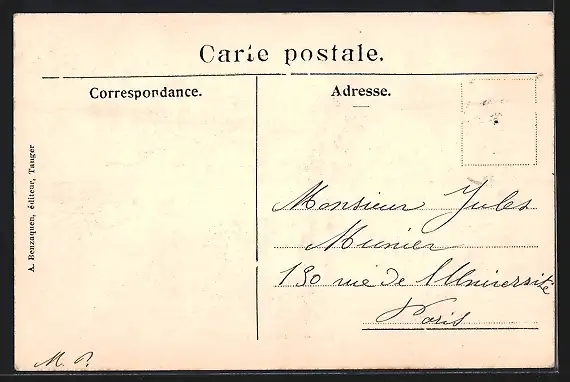 Carte postale.
Correspondance.
Adresse.
A. Benzaquen, éditeur, Tanger
Monsieur Jules
Munier
130 rue de l'Université
Paris
M. B.